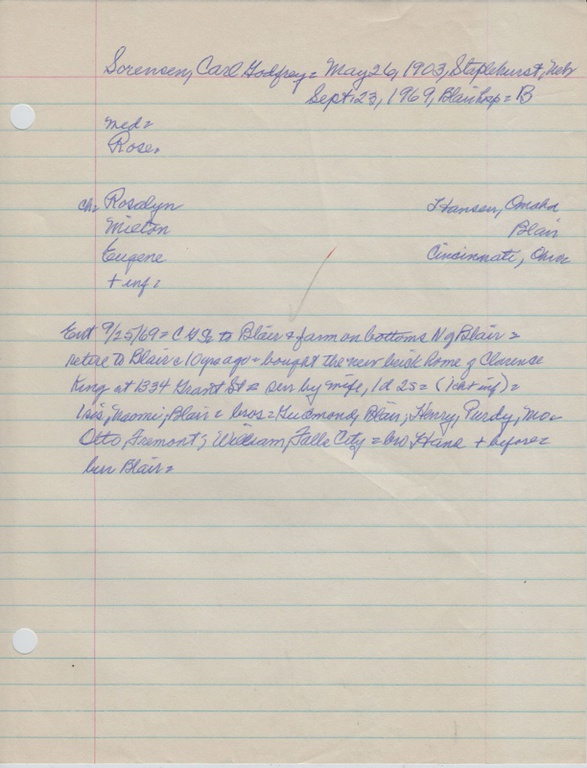 Sorensen, Carl Godfrey = May 26, 1903, Staplehurst, Neb
Sept. 23, 1969, Blair hosp = B
med =
Rose,
ch = Rosalyn Hansen, Omaha
Milton Blair
Eugene Cincinnati, Ohio
+ inf =
Ent 9/25/69 = to Blair + farm on bottoms N of Blair =
retire to Blair c 10 yrs ago + bought the new brick home of Clarence
King at 1334 Grant St = surv by wife, 1d 2s = (1 inf) =
1 sis, Naomi, Blair = bros = Gudmond, Blair; Henry, Purdy, Mo =
Otto, Fremont; William, Falls City = bro Hans + before =
bur Blair =